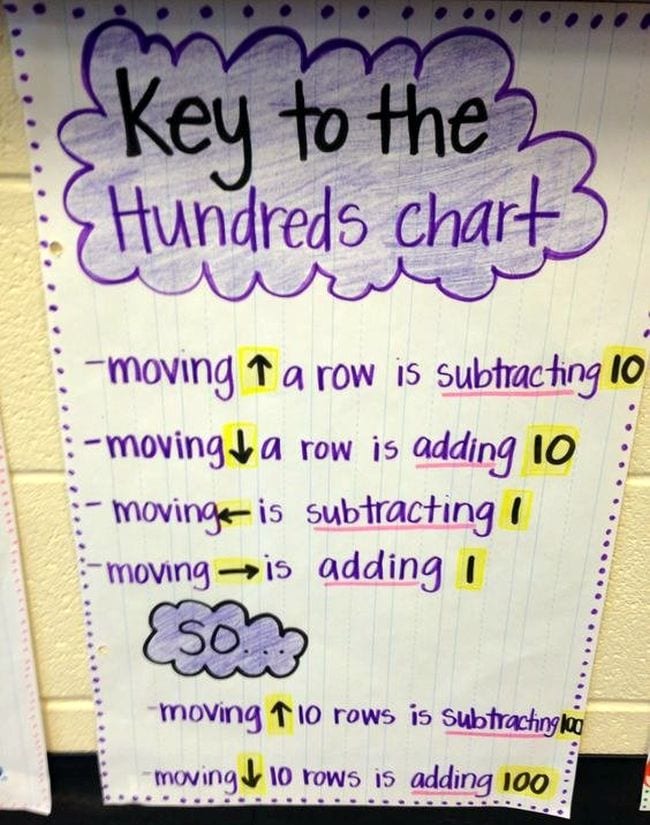 Key to the
Hundreds chart
-moving ↑ a row is subtracting 10
-moving ↓ a row is adding 10
- moving ← is subtracting 1
-moving → is adding 1
SO...
-moving ↑ 10 rows is subtracting 100
-moving ↓ 10 rows is adding 100